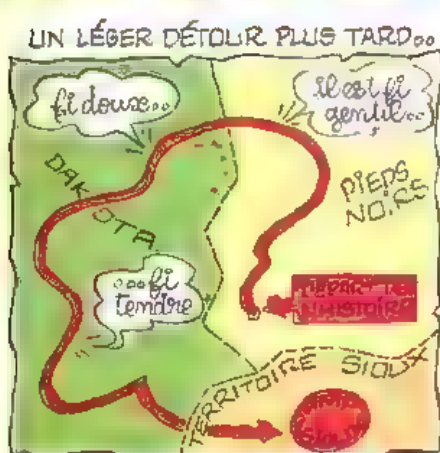 UN LÉGER DÉTOUR PLUS TARD..
fi douxe..
il est fi
gentil..
DAKOTA
PIEDS
NOIRS
...fi
tendre
DÉPART DE
L'HISTOIRE
TERRITOIRE SIOUX
SIOUX